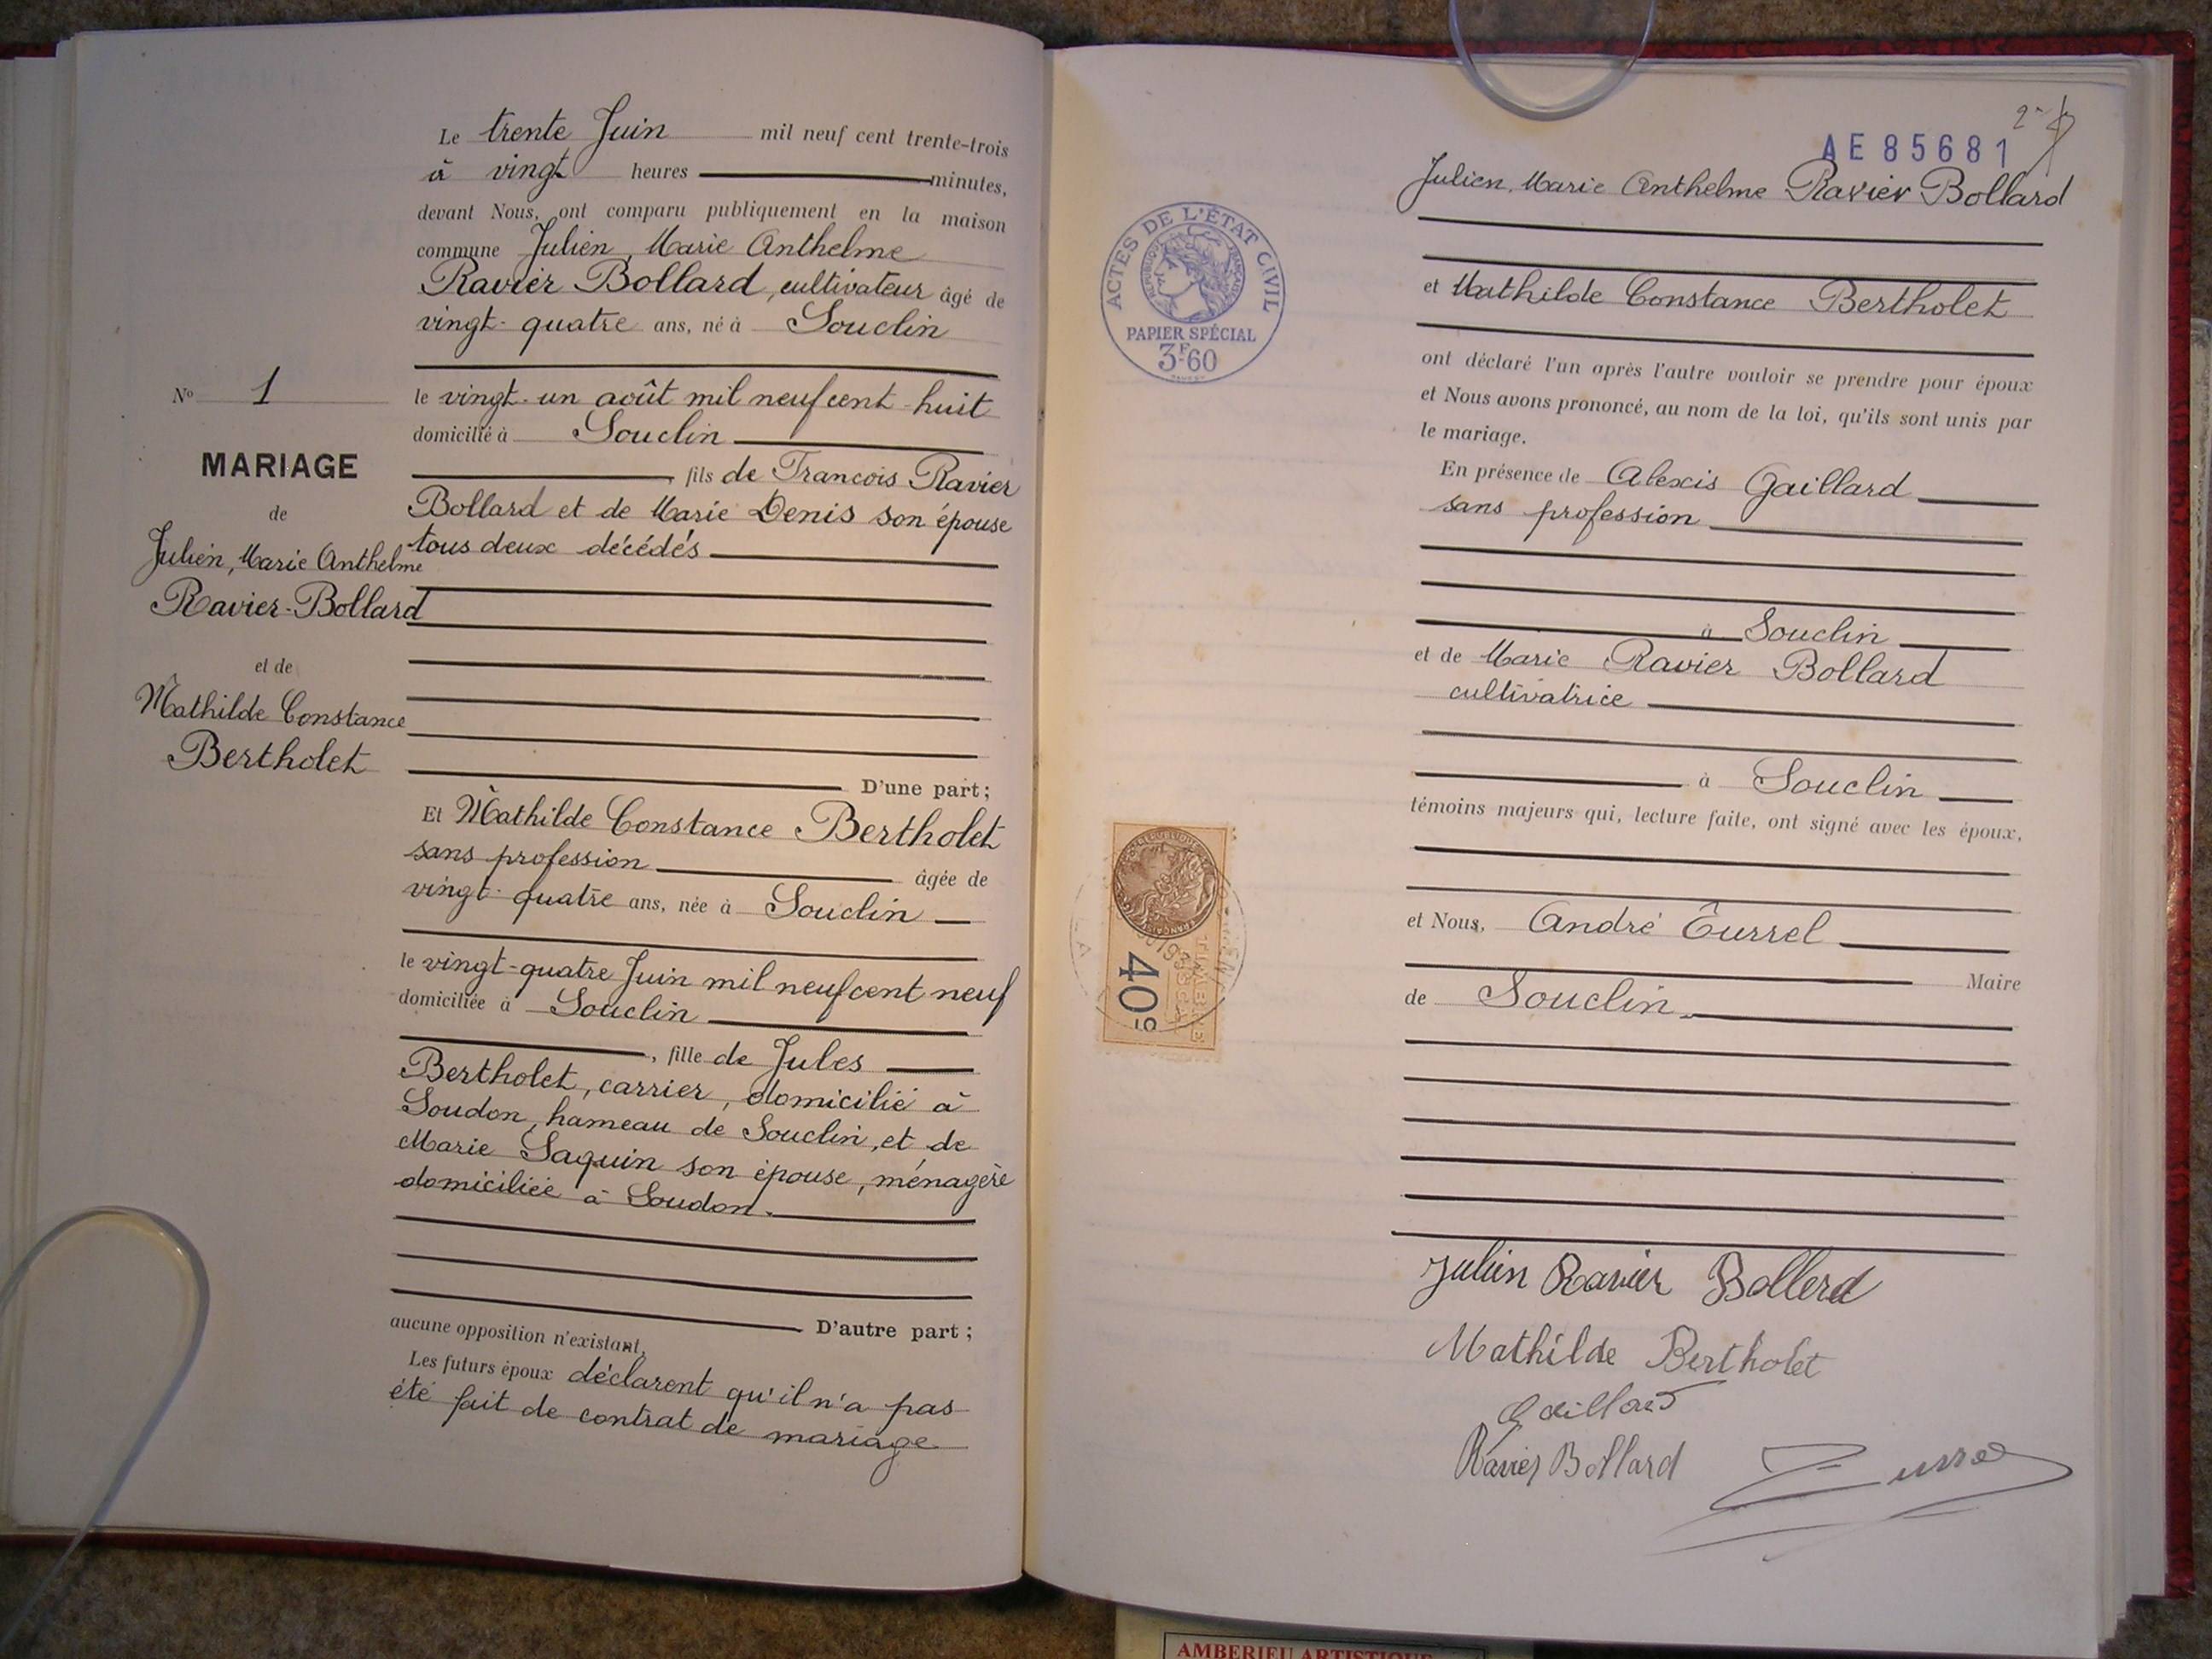 Le trente Juin mil neuf cent trente-trois
à vingt heures minutes,
devant Nous, ont comparu publiquement en la maison
commune Julien, Marie Anthelme
Ravier Bollard, cultivateur âgé de
vingt-quatre ans, né à Souclin
le vingt-un août mil neuf cent huit
domicilié à Souclin
, fils de Francois Ravier
Bollard et de Marie Denis son épouse
tous deux décédés
D'une part;
Et Mathilde Constance Bertholet
sans profession âgée de
vingt-quatre ans, née à Souclin
le vingt-quatre Juin mil neuf cent neuf
domiciliée à Souclin
, fille de Jules
Bertholet, carrier, domicilié à
Soudon, hameau de Souclin, et de
Marie Saquin son épouse, ménagère
domiciliée à Soudon.
D'autre part;
aucune opposition n'existant,
Les futurs époux déclarent qu'il n'a pas
été fait de contrat de mariage
No 1
MARIAGE
de
Julien, Marie Anthelme
Ravier-Bollard
et de
Mathilde Constance
Bertholet
AE 85681
Julien, Marie Anthelme Ravier Bollard
et Mathilde Constance Bertholet
ont déclaré l'un après l'autre vouloir se prendre pour époux
et Nous avons prononcé, au nom de la loi, qu'ils sont unis par
le mariage.
En présence de Alexis Gaillard
sans profession
à Souclin
et de Marie Ravier Bollard
cultivatrice
à Souclin
témoins majeurs qui, lecture faite, ont signé avec les époux,
et Nous, André Turrel
Maire
de Souclin.
Julien Ravier Bollerd
Mathilde Bertholet
Gaillard
Ravier Bollard
Turrel
ACTES DE L'ÉTAT CIVIL
RÉPUBLIQUE FRANÇAISE
PAPIER SPÉCIAL
3F60
40c
AMBERIEU ARTISTIQUE